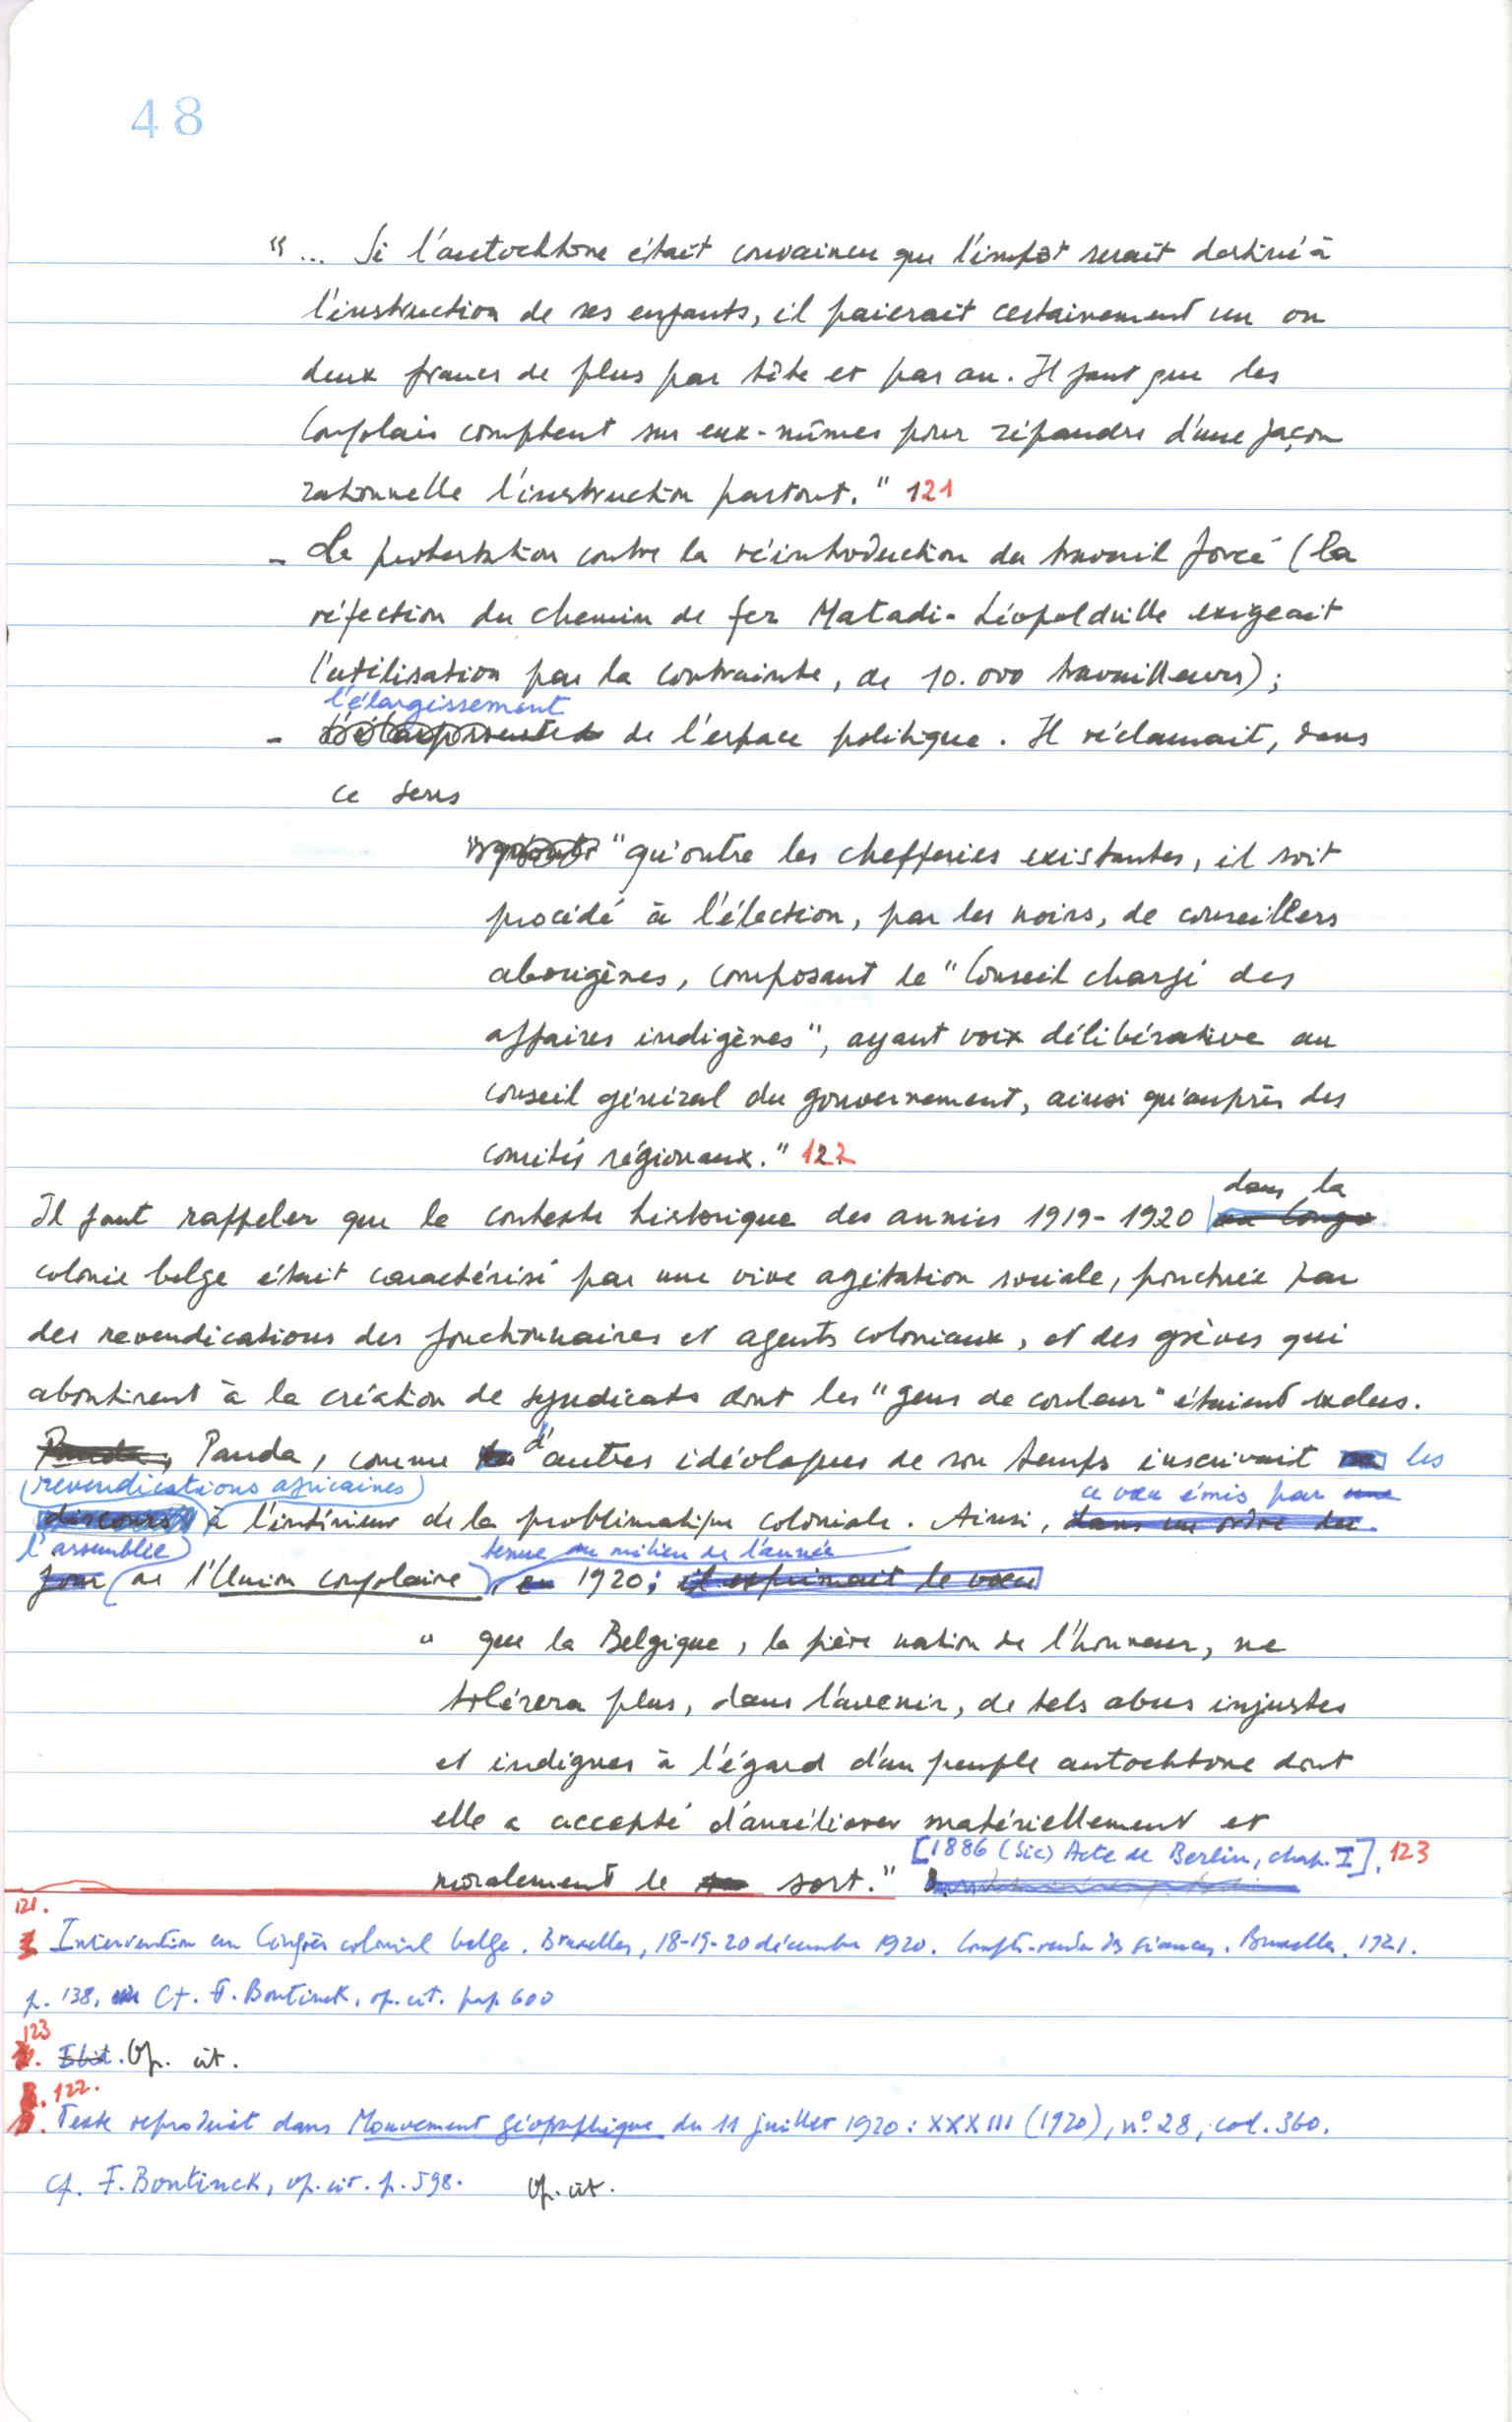 48
"... Si l'autochtone était convaincu que l'impôt serait destiné à
l'instruction de ses enfants, il paierait certainement un ou
deux francs de plus par tête et par an. Il faut que les
Congolais comptent sur eux-mêmes pour répandre d'une façon
rationnelle l'instruction partout." 121
- La protestation contre la réintroduction du travail forcé (la
réfection du chemin de fer Matadi-Léopoldville exigeait
l'utilisation par la contrainte, de 10.000 travailleurs);
l'élargissement
- de l'espace politique. Il réclamait, dans
ce sens
"qu'outre les chefferies existantes, il soit
procédé à l'élection, par les noirs, de conseillers
aborigènes, composant le "Conseil chargé des
affaires indigènes", ayant voix délibérative au
conseil général du gouvernement, ainsi qu'auprès des
comités régionaux." 122
dans la
Il faut rappeler que le contexte historique des années 1919-1920 au Congo
colonie belge était caractérisé par une vive agitation sociale, ponctuée par
des revendications des fonctionnaires et agents coloniaux, et des grèves qui
aboutirent à la création de syndicats dont les "gens de couleur" étaient exclus.
Panda, Panda, comme d'autres idéologues de son temps inscrivait les
revendications africaines ce vœu émis par une
discours à l'intérieur de la problématique coloniale. Ainsi, dans un ordre du
l'assemblée tenue au milieu de l'année
jour de l'Union congolaise, en 1920: il exprimait le vœu
" que la Belgique, la fière nation de l'honneur, ne
tolérera plus, dans l'avenir, de tels abus injustes
et indignes à l'égard d'un peuple autochtone dont
elle a accepté d'améliorer matériellement et
[1886 (sic) Acte de Berlin, chap. I]. 123
moralement le sort."
121.
Intervention au Congrès colonial belge. Bruxelles, 18-19-20 décembre 1920. Compte-rendu des séances. Bruxelles. 1921.
p. 138, Cf. F. Bontinck, op. cit. pp. 600
123
Ibid. Op. cit.
122.
Texte reproduit dans Mouvement géographique du 11 juillet 1920: XXXIII (1920), n° 28, col. 360.
Cf. F. Bontinck, op. cit. p. 598. Op. cit.